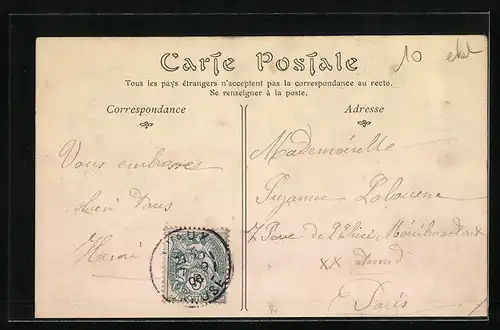 Carte Postale
Tous les pays étrangers n'acceptent pas la correspondance au recto.
Se renseigner à la poste.
Correspondance
Adresse
10
Vous embrasse
bien Tous
Henri
Mademoiselle
Suzanne
7 Rue de
XX
Paris